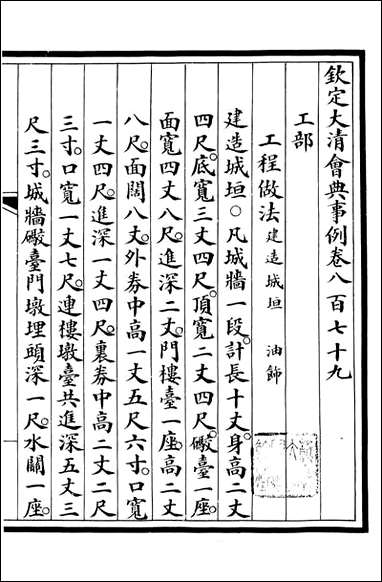 欽定大清會典事例卷八百七十九
工部
工程做法建造城垣 油飾
建造城垣○凡城牆一段計長十丈身高二丈
四尺底寬三丈四尺頂寬二丈四尺礮臺一座
面寬四丈八尺進深二丈門樓臺一座高二丈
八尺面闊八丈外劵中高一丈五尺六寸口寬
一丈四尺進深一丈四尺裏劵中高二丈二尺
三寸口寬一丈七尺連樓墩臺共進深五丈三
尺三寸城牆礮臺門墩埋頭深一尺水關一座